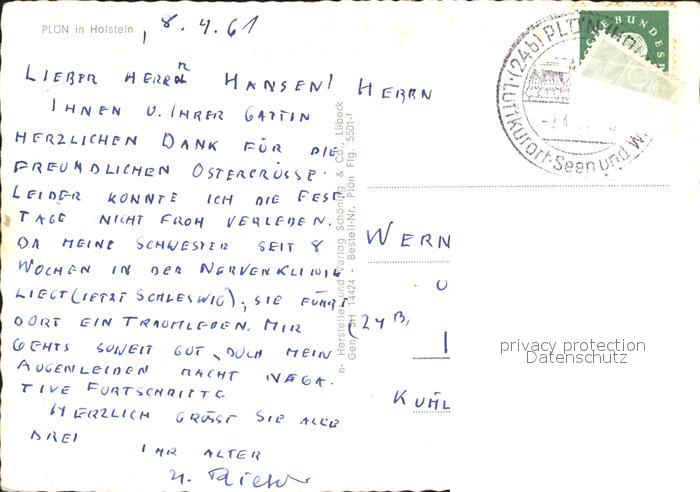 PLÖN in Holstein
, 8. 4. 61
LIEBER HERRN HANSEN!
IHNEN U. IHRER GATTIN
HERZLICHEN DANK FÜR DIE
FREUNDLICHEN OSTERGRÜSSE.
LEIDER KONNTE ICH DIE FEST
TAGE NICHT FROH VERLEBEN.
DA MEINE SCHWESTER SEIT 8
WOCHEN IN DER NERVENKLINIK
LIEGT (JETZT SCHLESWIG), SIE FÜHRT
DORT EIN TRAUMLEBEN. MIR
GEHTS SOWEIT GUT, DOCH MEIN
AUGENLEIDEN MACHT NEGA.
TIVE FORTSCHRITTE
HERZLICH GRÜSST SIE ALLE
DREI
IHR ALTER
Hersteller und Verlag Schöning & Co., Lübeck
Gen. SH 14424 - Bestell-Nr. Plön Flg. 5501-f
HERRN
WERN
U
(24 B)
KÜHL
(24b) PLÖN (HOL
LUFTKURORT - Seen und W
BUNDES
privacy protection
Datenschutz